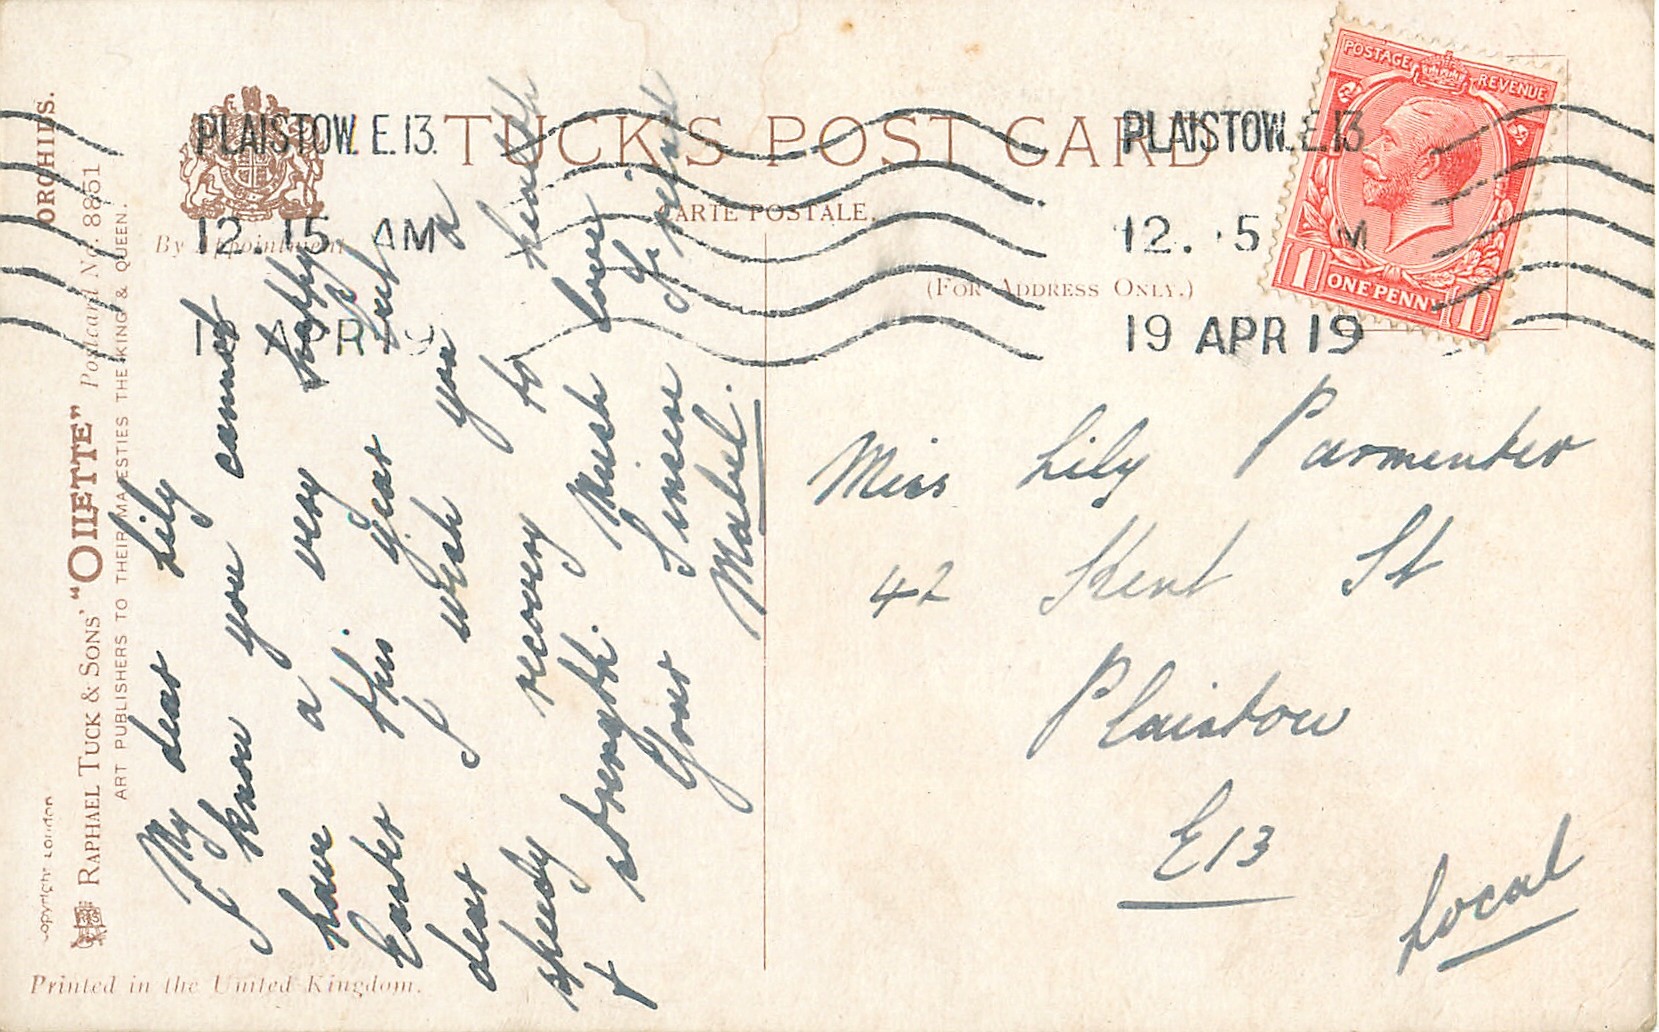 TUCK'S POST CARD
CARTE POSTALE.
(FOR ADDRESS ONLY.)
By Appointment
PLAISTOW. E.13.
12. 15 AM
APR 19
PLAISTOW. E.13
12. 5 M
19 APR 19
POSTAGE REVENUE
1 ONE PENNY 1
ORCHIDS.
Postcard No. 8851
RAPHAEL TUCK & SONS' "OILETTE"
ART PUBLISHERS TO THEIR MAJESTIES THE KING & QUEEN.
Copyright London
Printed in the United Kingdom.
My dear Lily
I know you cannot
have a very happy
Easter this year but
dear I wish you a
speedy recovery to health
& strenghth. Much love
Your Sincere Friend
Mabel.
Miss Lily Parmenter
42 Kent St
Plaistow
E13
Local